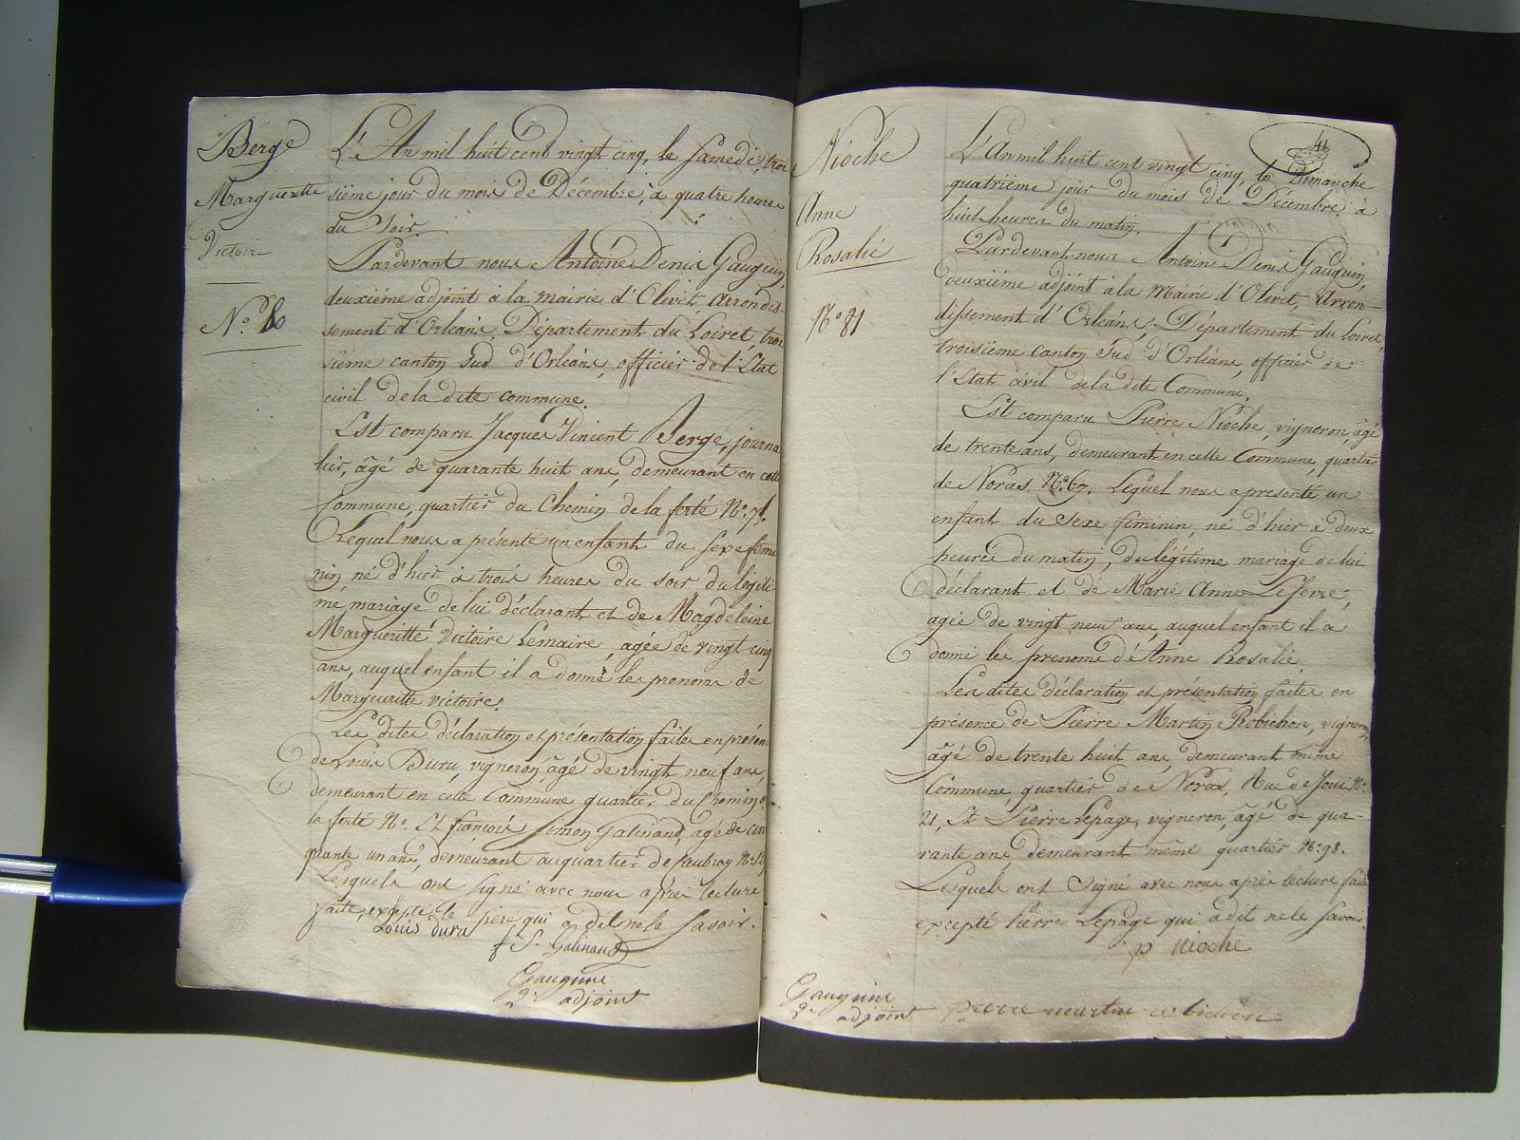 Berge
Margueritte
Victoire
N.° 80
L'An mil huit cent vingt cinq, le Samedi, troi
sième jour du mois de Décembre, à quatre heures
du Soir.
Pardevant nous Antoine Denis Gauguin,
deuxième adjoint à la mairie d'Olivet, Arrondis-
sement d'Orléans, Département du Loiret, troi
sième canton Sud d'Orléans, officier de l'Etat
civil de la dite commune.
Est comparu Jacques Vincent Berge, journa
lier, âgé de quarante huit ans, demeurant en cette
Commune, quartier du Chemin de la ferté N.°
Lequel nous a présenté un enfant du sexe fémi
nin, né d'hier à trois heures du soir du légiti
me mariage de lui déclarant et de Magdeleine
Margueritte Victoire Lemaire, agée de vingt cinq
ans, auquel enfant il a donné les prenoms de
Margueritte victoire.
Les dites déclaration et présentation faites en présence
de Louis Duru, vigneron, âgé de vingt neuf ans,
demeurant en cette Commune quartier du Chemin de
la ferté N.° Et françois Simon Galinand, agé de cin
quante un ans, demeurant au quartier de Caubray N.°
Lesquels ont signé avec nous après lecture
faite, excepté le père qui a dit ne le savoir.
Louis dura
f S. Galinand
Gauguin
2e adjoint
41
Nioche
Anne
Rosalie
N.° 81
L'An mil huit cent vingt cinq, le Dimanche
quatrième jour du mois de Décembre, à
huit heures du matin.
Pardevant nous Antoine Denis Gauguin,
deuxième adjoint à la Mairie d'Olivet, Arron-
dissement d'Orléans, Département du Loiret,
troisième canton Sud d'Orléans, officier de
l'Etat civil de la dite Commune.
Est comparu Pierre Nioche, vigneron, âgé
de trente ans, demeurant en cette Commune, quartier
de Noras N.° 67. Lequel nous a présenté un
enfant du Sexe féminin, né d'hier à deux
heures du matin, du légitime mariage de lui
déclarant et de Marie Anne Lefevre,
agée de vingt neuf ans, auquel enfant il a
donné les prenoms d'Anne Rosalie.
Les dites déclaration et présentation faites en
présence de Pierre Martin Robichon, vigneron,
âgé de trente huit ans, demeurant même
Commune, quartier de Noras, Rue de Joui N.°
21, Et Pierre Lepage, vigneron, âgé de qua-
rante ans demeurant même quartier N.° 98.
Lesquels ont signé avec nous après lecture faite
excepté Pierre Lepage qui a dit ne le savoir.
p nioche
Gauguin
2e adjoint
pierre martin robichon